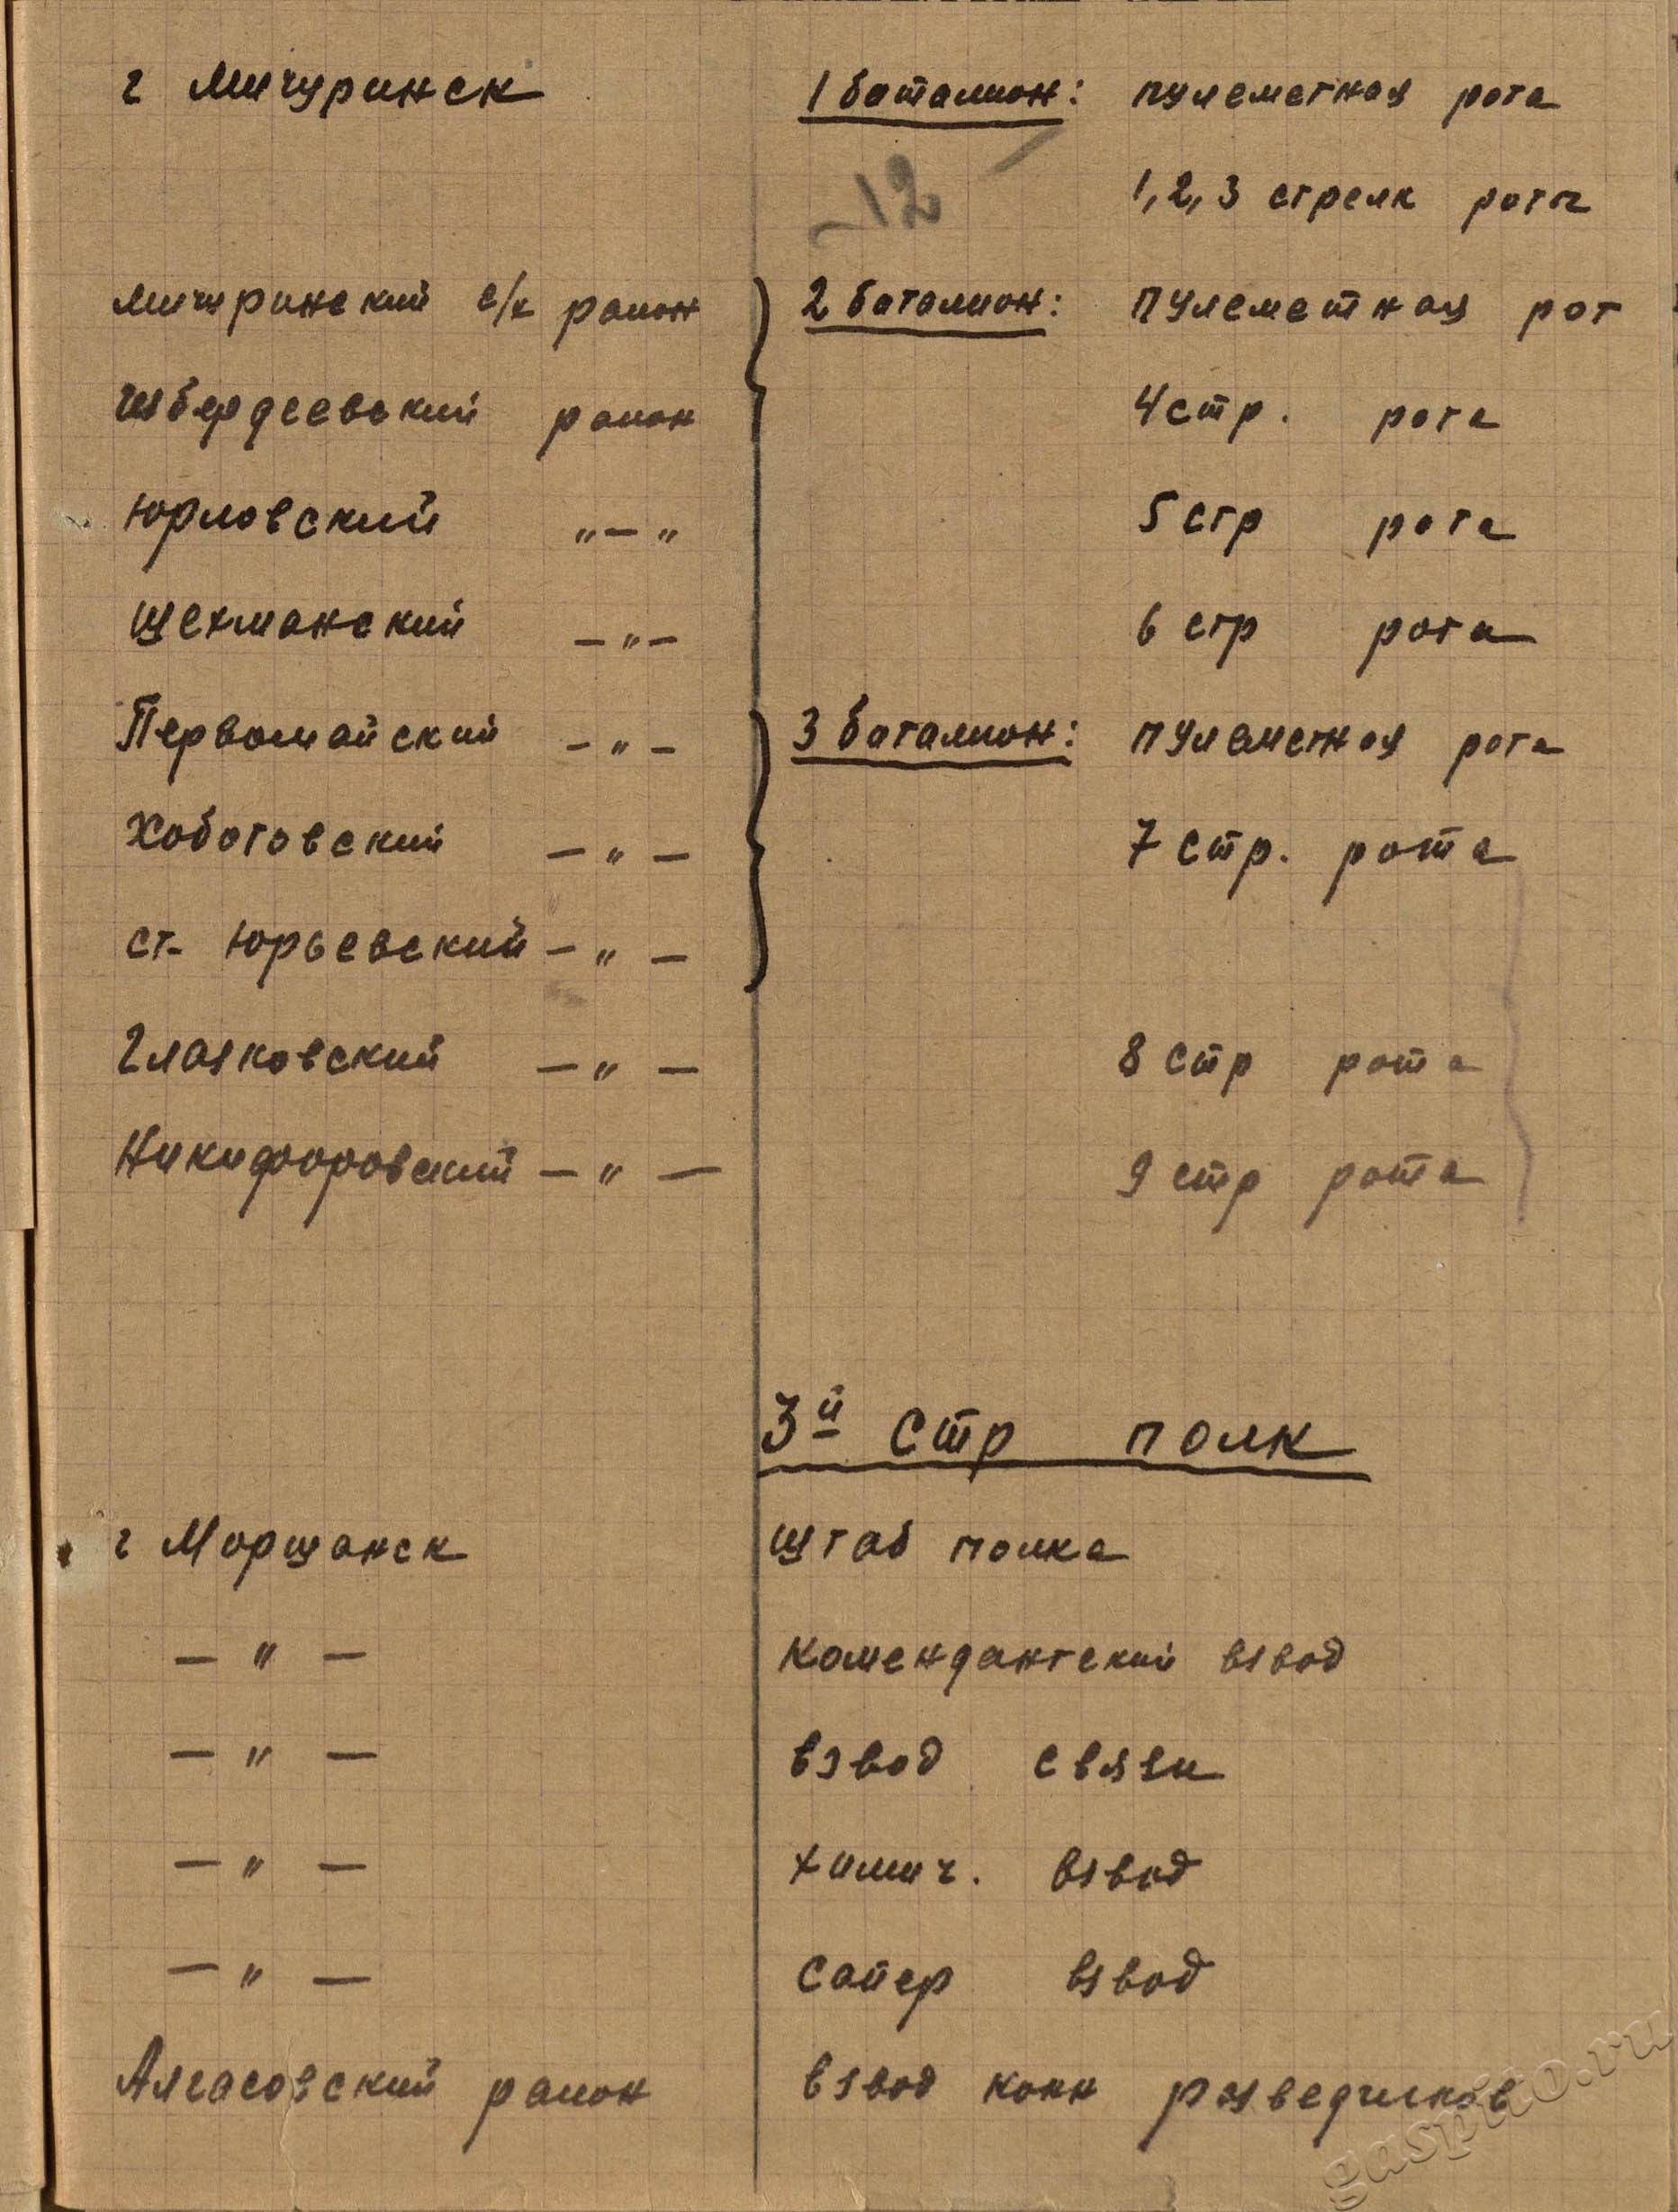 г Мичуринск 1 баталион: пулеметная рота
-12 1, 2, 3 стрелк роты
Мичуринский с/х район 2 баталион: пулеметная рот
Избердеевский район 4 стр. рота
Юрловский "-" 5 стр рота
Шехманский -"- 6 стр рота
Первомайский -"- 3 баталион: пулеметная рота
Хоботовский -"- 7 стр. рота
ст. Юрьевский -"-
Глазковский -"- 8 стр рота
Никифоровский -"- 9 стр рота
3й стр полк
г Моршанск Штаб полка
-"- Комендантский взвод
-"- взвод связи
-"- химич. взвод
-"- сапер взвод
Алгасовский район взвод конн разведчиков
gaspito.ru